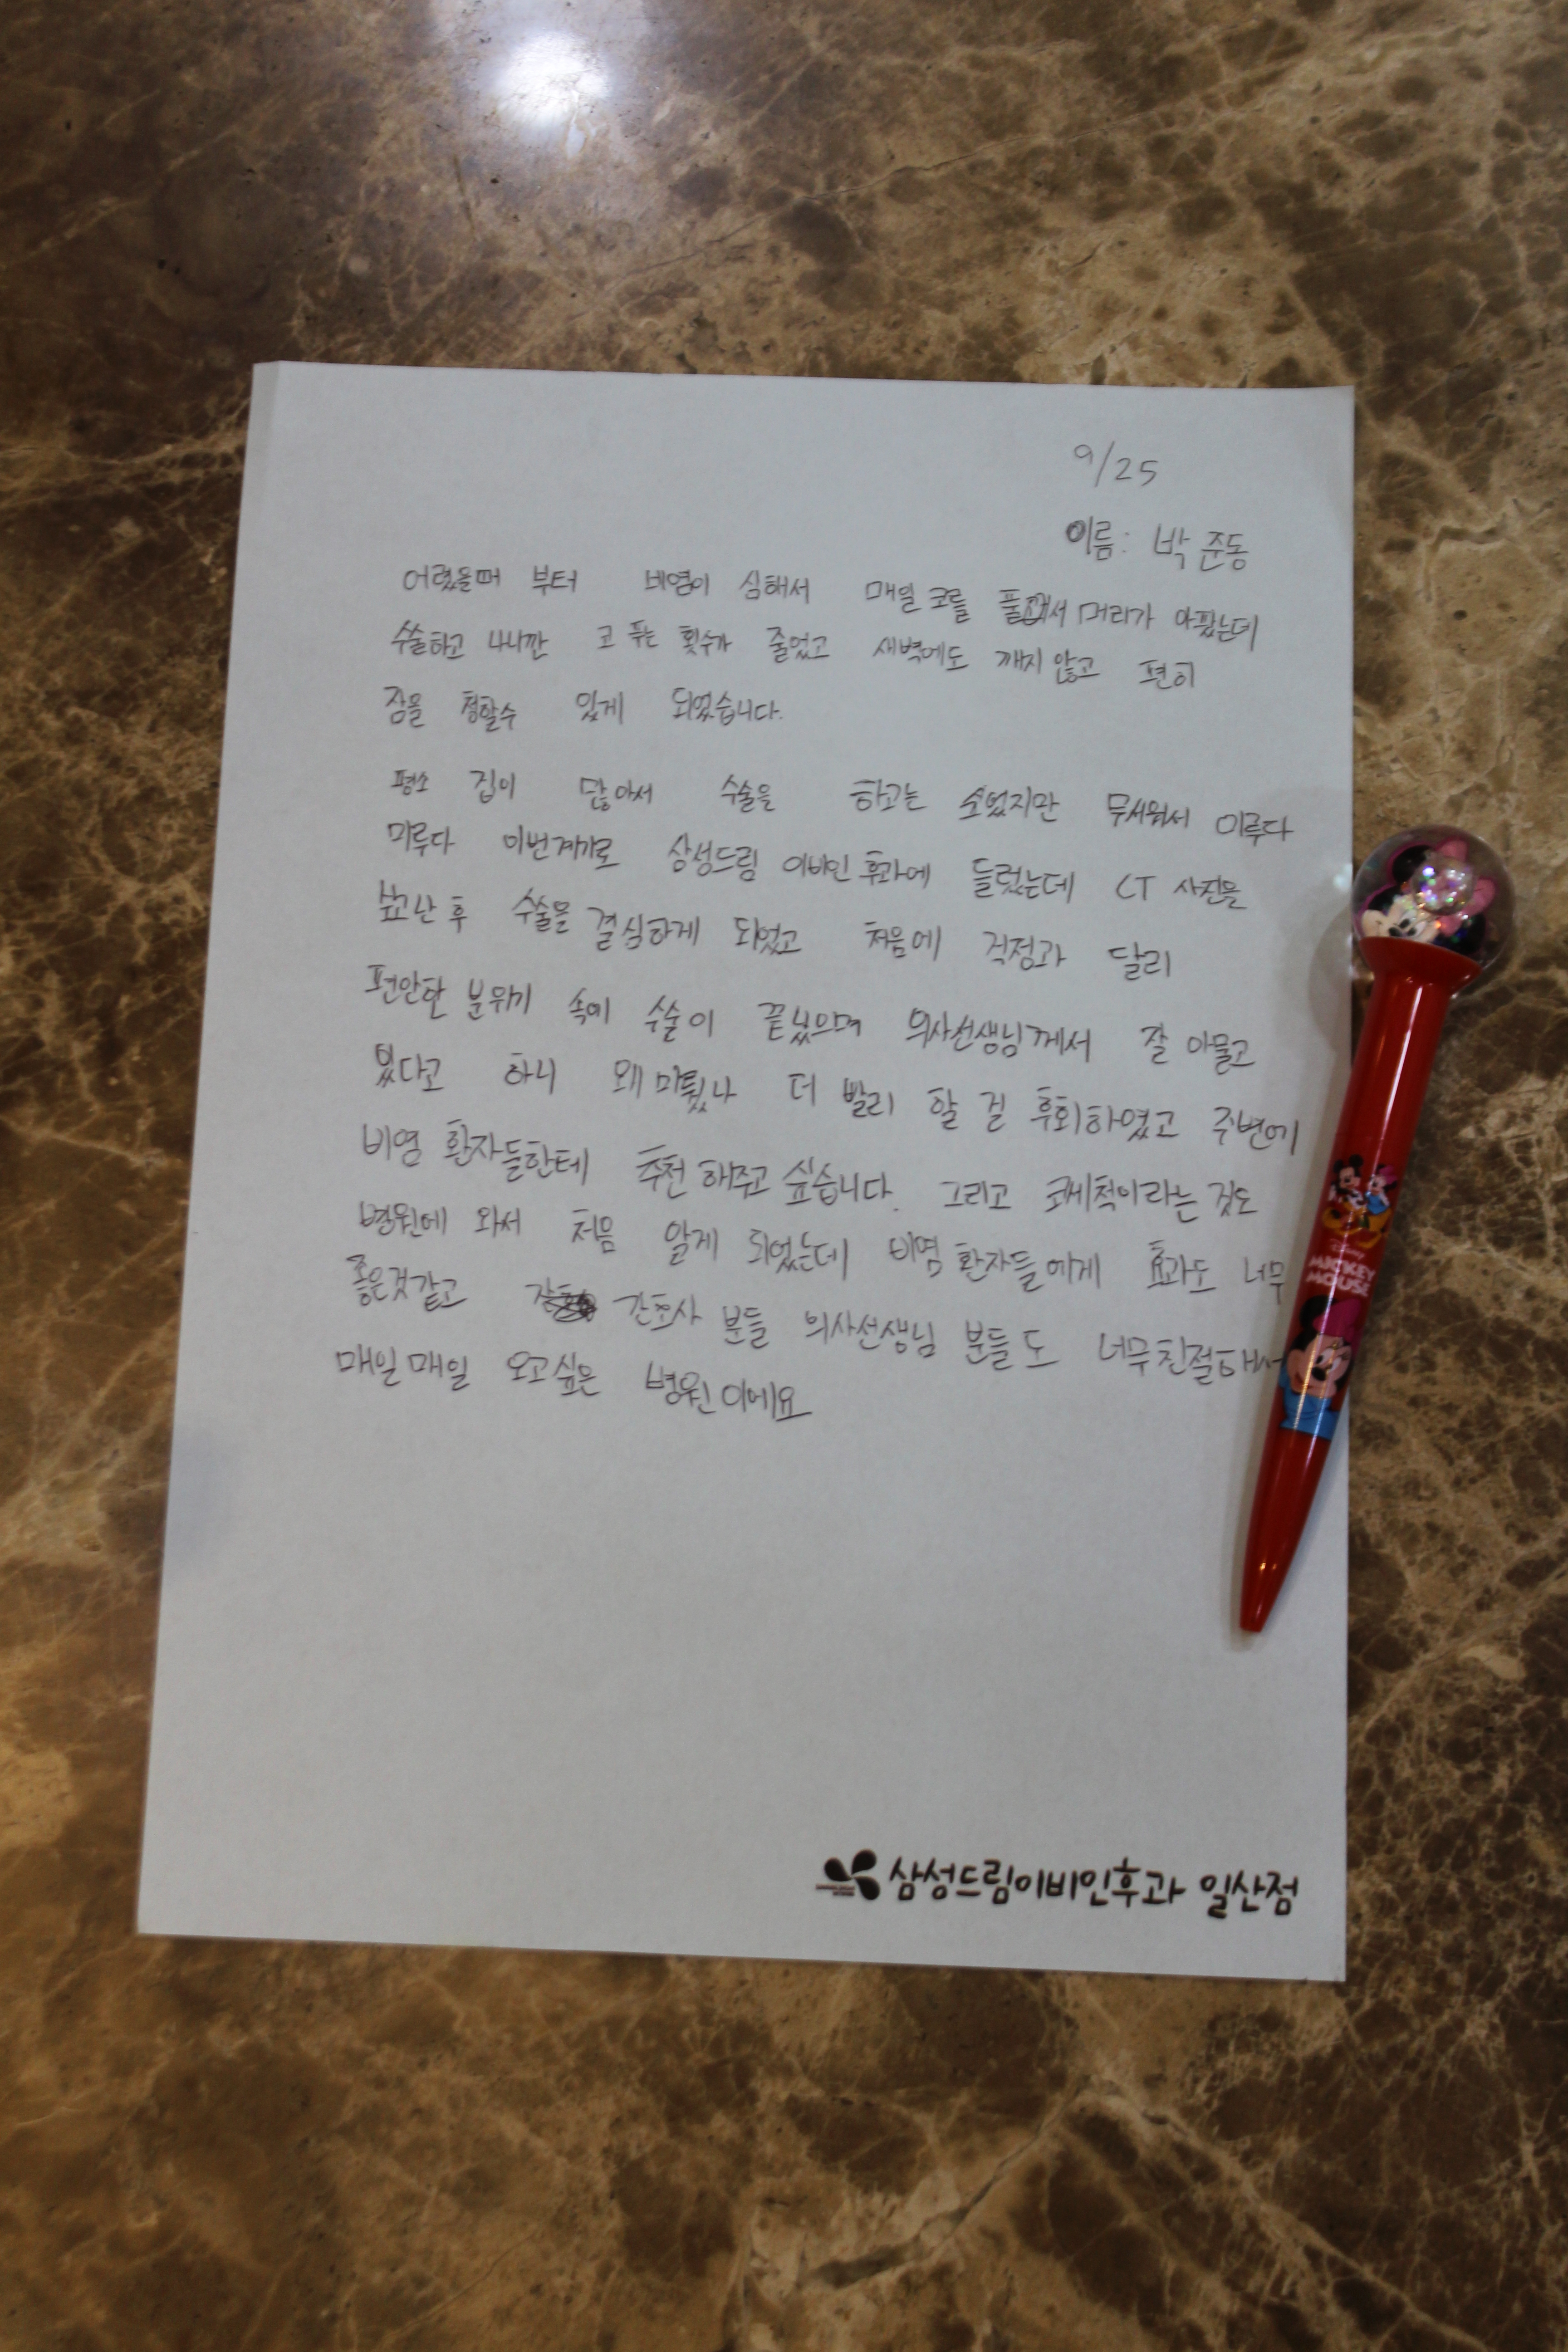 9/25
이름: 박준동
어렸을때 부터 비염이 심해서 매일 코를 풀고해서 머리가 아팠는데
수술하고 나니깐 코 푸는 횟수가 줄었고 새벽에도 깨지 않고 편히
잠을 청할수 있게 되었습니다.
평소 겁이 많아서 수술을 하고는 싶었지만 무서워서 미루다
미루다 이번계기로 삼성드림 이비인후과에 들렀는데 CT 사진을
찍고난 후 수술을 결심하게 되었고 처음에 걱정과 달리
편안한 분위기 속에 수술이 끝났으며 의사선생님께서 잘 아물고
있다고 하니 왜 미뤘나 더 빨리 할 걸 후회하였고 주변에
비염 환자들한테 추천 해주고 싶습니다. 그리고 코세척이라는 것도
병원에 와서 처음 알게 되었는데 비염 환자들에게 효과도 너무
좋은것같고 간호사 분들 의사선생님 분들도 너무친절해서
매일매일 오고싶은 병원이에요
삼성드림이비인후과 일산점
Disney
MICKEY
MOUSE